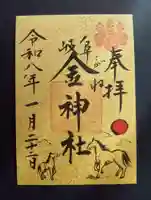 奉拝
岐阜
金神社
令和八年一月二十二日